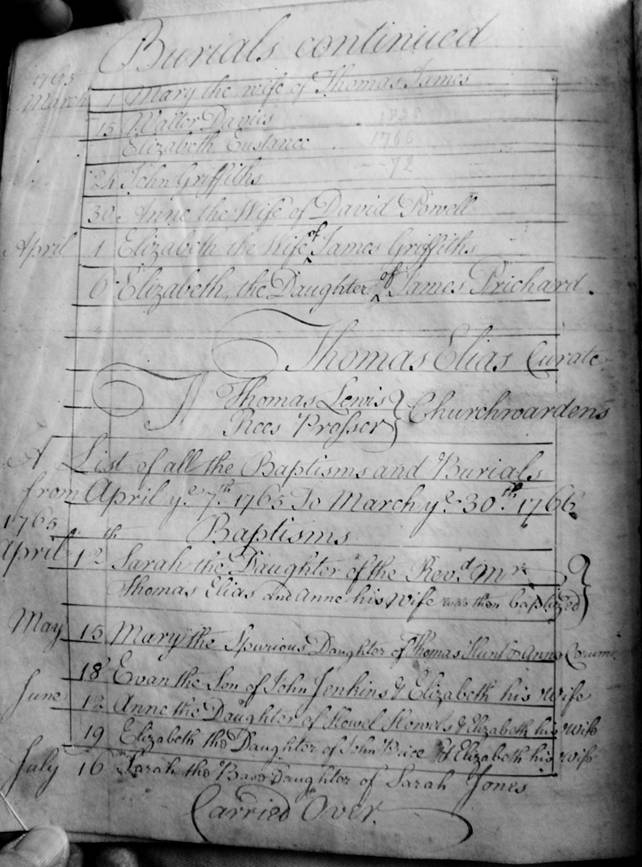 Burials continued
1765
March 1 Mary the wife of Thomas James
15 Walter Davies
Elizabeth Eustance
1766
24 John Griffiths
30 Anne the Wife of David Powell
April 1 Elizabeth the Wife of James Griffiths
6 Elizabeth, the Daughter of James Prichard.
Thomas Elias Curate
Thomas Lewis } Churchwardens
Rees Prosser
A List of all the Baptisms and Burials
from April ye 7th 1765 To March ye 30th 1766
1765 Baptisms
April 12th Sarah the Daughter of the Revd Mr
Thomas Elias and Anne his Wife was then baptized }
May 15 Mary the Spurious Daughter of Thomas & Anne
18 Evan the Son of John Jenkins & Elizabeth his Wife
June 12 Anne the Daughter of Howel Howels & Elizabeth his Wife
19 Elizabeth the Daughter of John Price & Elizabeth his Wife
July 16 Sarah the Base Daughter of Sarah Jones
Carried Over